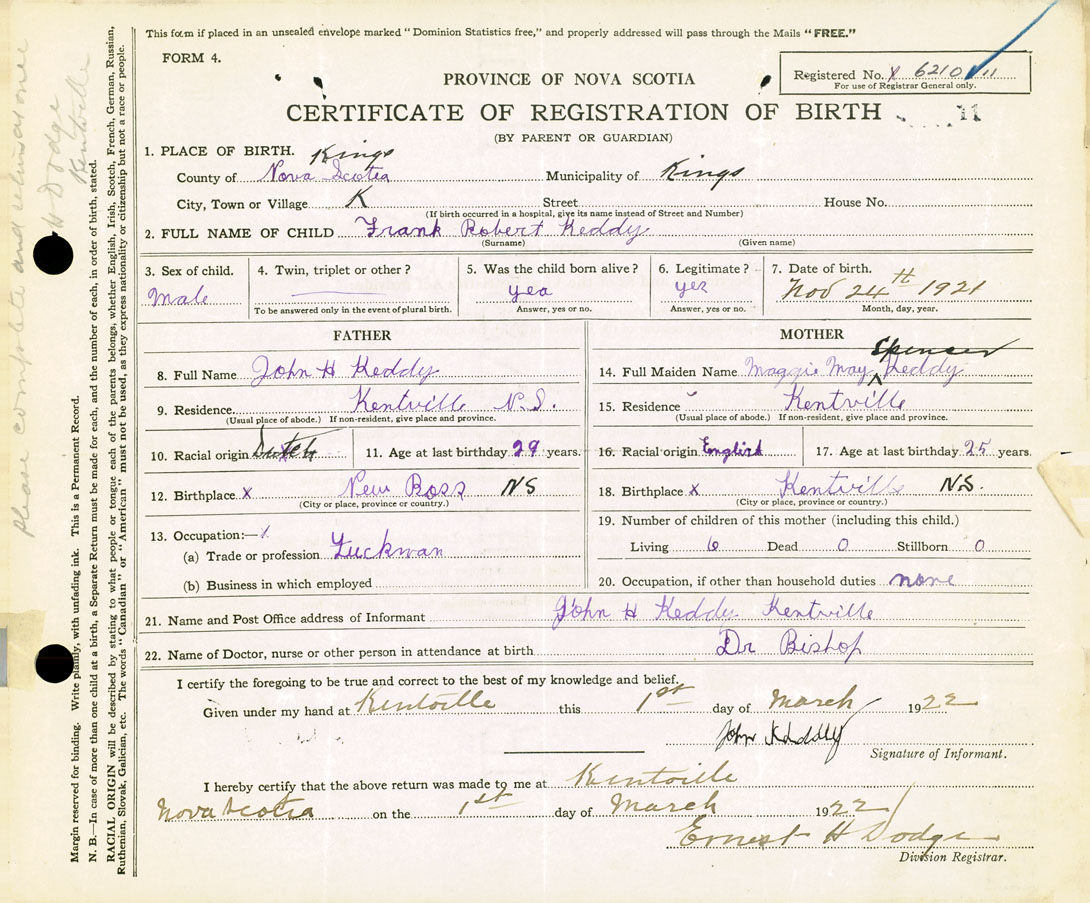 This form if placed in an unsealed envelope marked "Dominion Statistics free," and properly addressed will pass through the Mails "FREE."
FORM 4.
PROVINCE OF NOVA SCOTIA
Registered No. x 6210 11
For use of Registrar General only.
CERTIFICATE OF REGISTRATION OF BIRTH 11
(BY PARENT OR GUARDIAN)
1. PLACE OF BIRTH. Kings
County of Nova Scotia Municipality of Kings
City, Town or Village K Street House No.
(If birth occurred in a hospital, give its name instead of Street and Number)
2. FULL NAME OF CHILD Frank Robert Keddy
(Surname) (Given name)
3. Sex of child. 4. Twin, triplet or other? 5. Was the child born alive? 6. Legitimate? 7. Date of birth.
Male yea yez Nov 24th 1921
To be answered only in the event of plural birth. Answer, yes or no. Answer, yes or no. Month, day, year.
FATHER
8. Full Name John H Keddy
9. Residence. Kentville N.S.
(Usual place of abode.) If non-resident, give place and province.
10. Racial origin Dutch 11. Age at last birthday 29 years.
12. Birthplace x New Ross NS
(City or place, province or country.)
13. Occupation:—
(a) Trade or profession Tuckman
(b) Business in which employed
MOTHER
Spencer
14. Full Maiden Name Maggie May Keddy
15. Residence Kentville
(Usual place of abode.) If non-resident, give place and province.
16. Racial origin English 17. Age at last birthday 25 years.
18. Birthplace x Kentville N.S.
(City or place, province or country.)
19. Number of children of this mother (including this child.)
Living 6 Dead 0 Stillborn 0
20. Occupation, if other than household duties none
21. Name and Post Office address of Informant John H Keddy Kentville
22. Name of Doctor, nurse or other person in attendance at birth Dr Bishop
I certify the foregoing to be true and correct to the best of my knowledge and belief.
Given under my hand at Kentville this 1st day of March 1922
John Keddy
Signature of Informant.
I hereby certify that the above return was made to me at Kentville
Nova Scotia on the 1st day of March 1922
Ernest H Dodge
Division Registrar.
Margin reserved for binding. Write plainly, with unfading ink. This is a Permanent Record.
N. B.—In case of more than one child at a birth, a Separate Return must be made for each, and the number of each, in order of birth, stated.
RACIAL ORIGIN will be described by stating to what people or tongue each of the parents belongs, whether English, Irish, Scotch, French, German, Russian,
Ruthenian, Slovak, Galician, etc. The words "Canadian" or "American" must not be used, as they express nationality or citizenship but not a race or people.
Please complete and return at once
H Dodge
Kentville